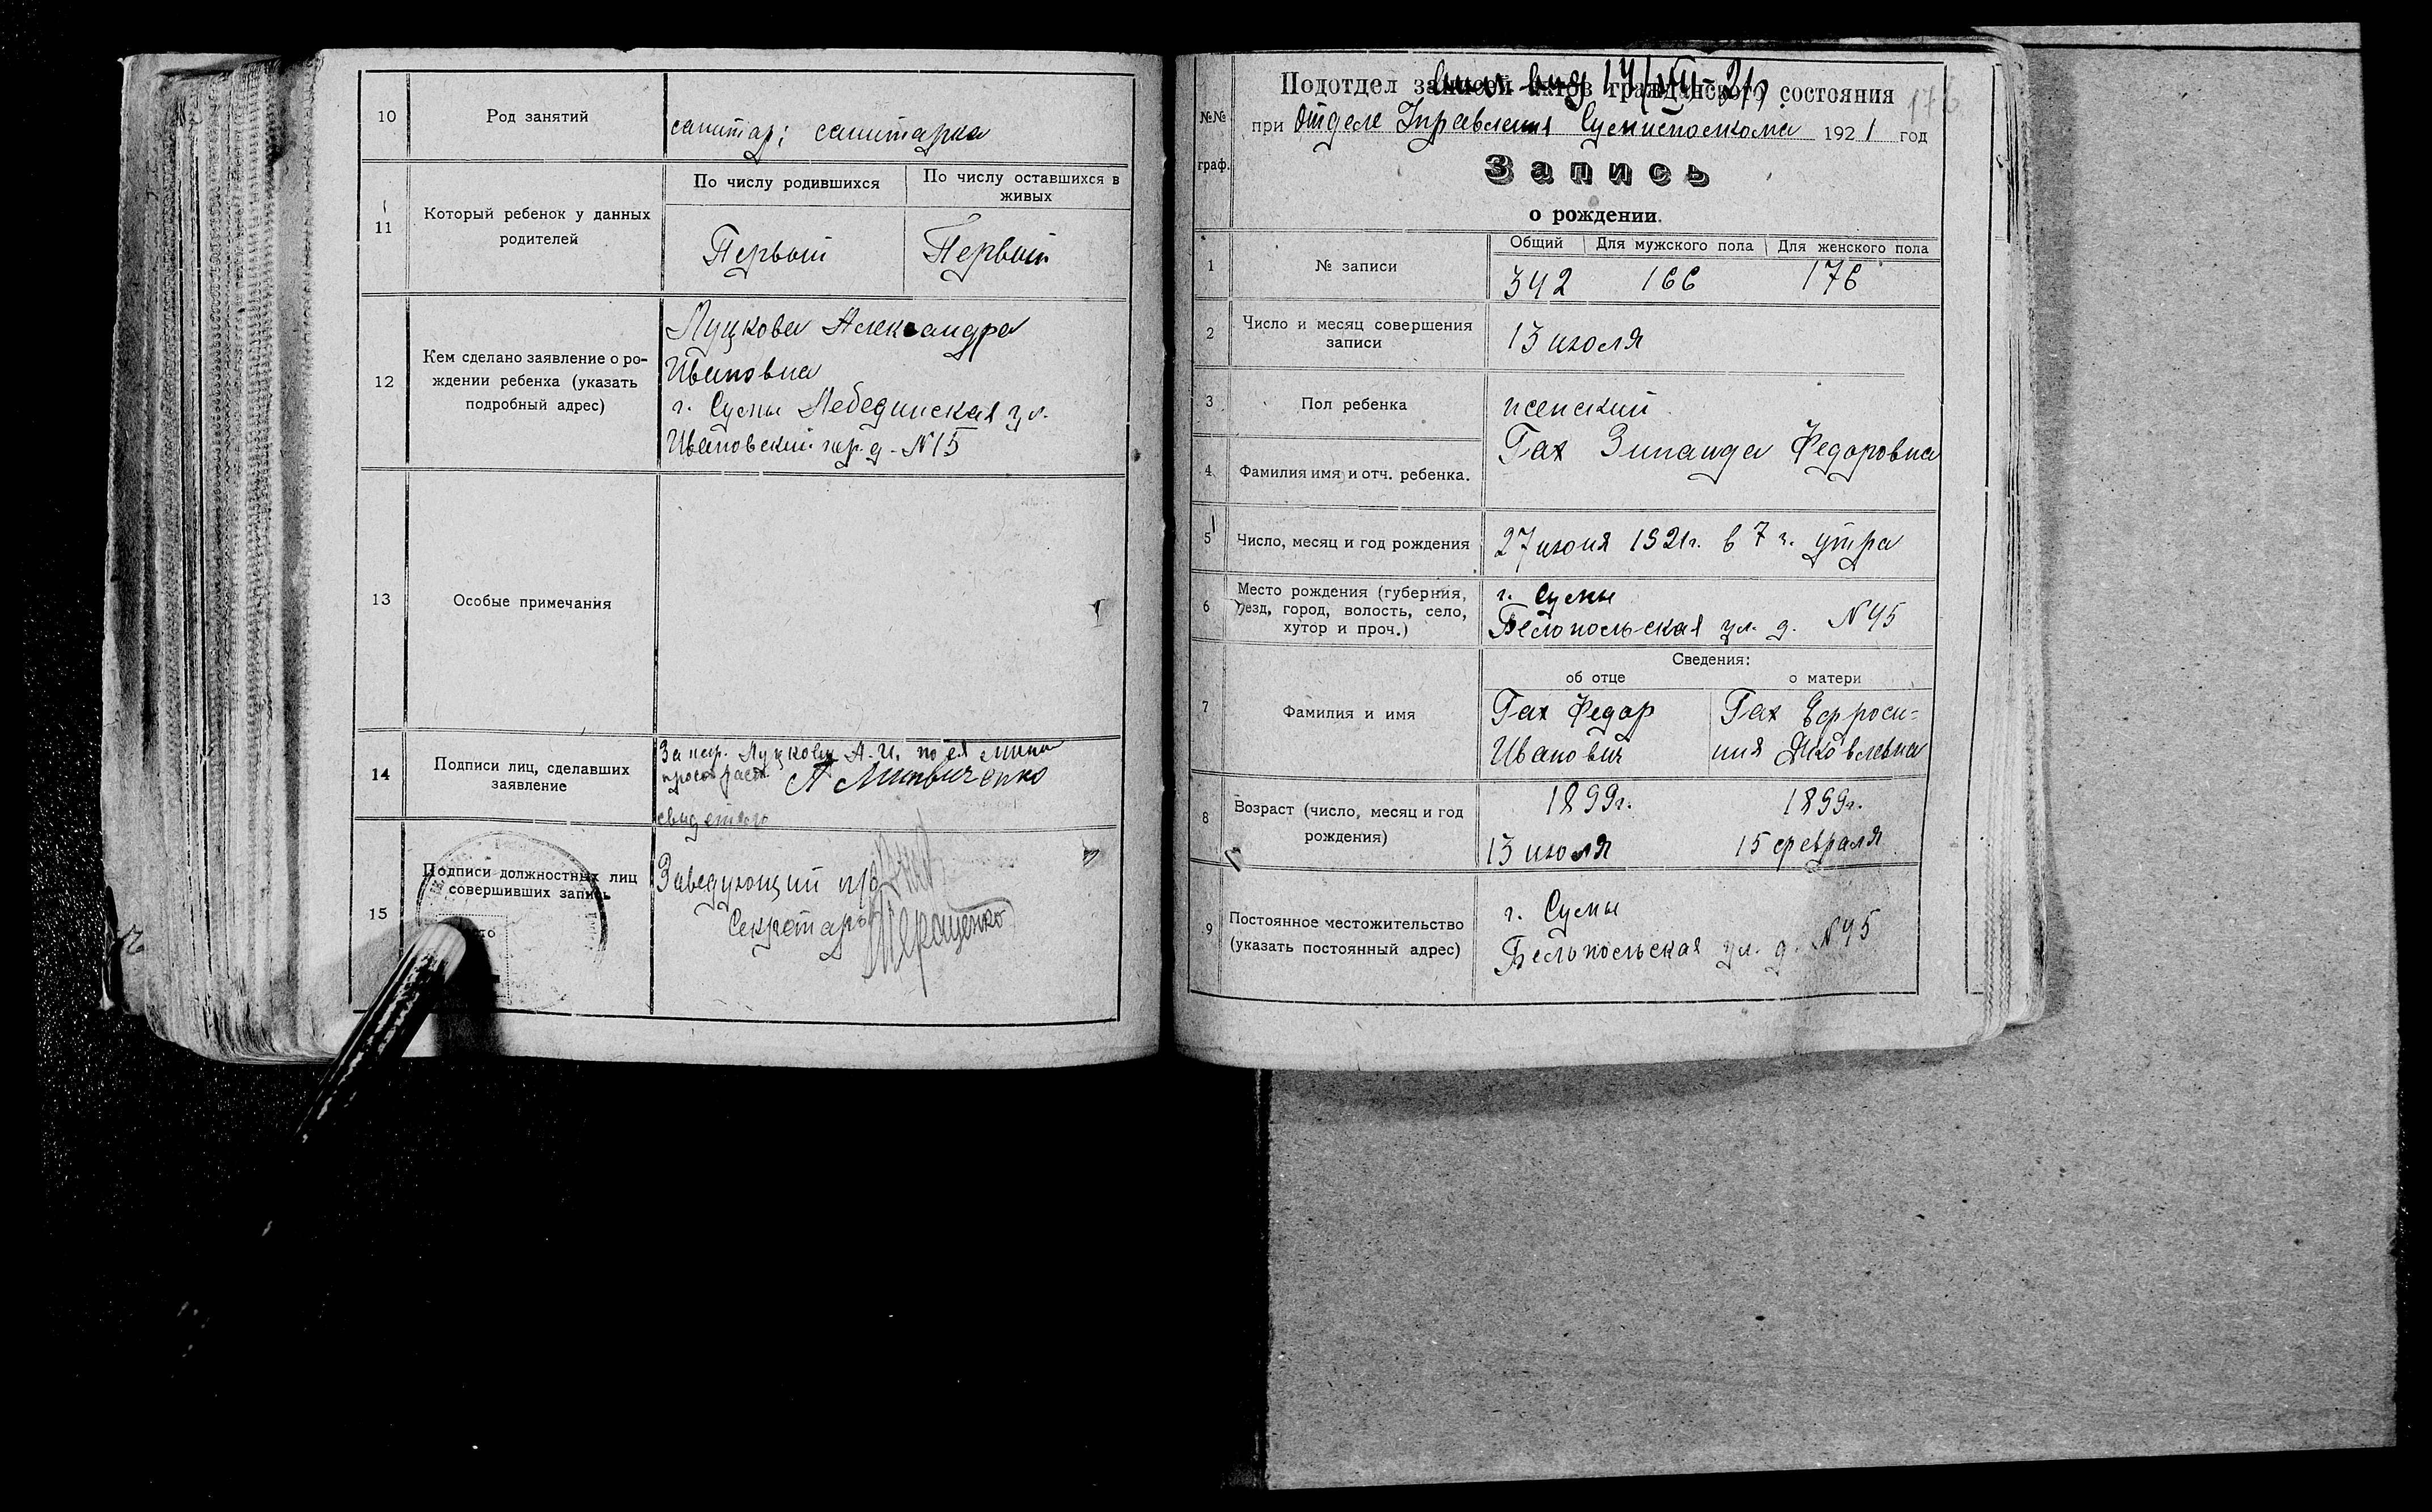 10
Род занятий
санитар; санитарка
11
Который ребенок у данных
родителей
По числу родившихся
По числу оставшихся в
живых
Первый
Первый
12
Кем сделано заявление о ро-
ждении ребенка (указать
подробный адрес)
Луцкова Александра
Ивановна
г. Сумы Лебединская ул.
Ивановский пер. д. №15
13
Особые примечания
14
Подписи лиц, сделавших
заявление
За негр. Луцкову А. И. по ея личн
прось расп.
15
Подписи должностных лиц
совершивших запись
Заведующий п/о
Секретарь
№№
граф.
Подотдел записей актов гражданского состояния
при Отделе Управления Сумисполкома 1921 год
176
Запись
о рождении.
1
№ записи
Общий
Для мужского пола
Для женского пола
342
166
176
2
Число и месяц совершения
записи
13 июля
3
Пол ребенка
женский
4
Фамилия имя и отч. ребенка.
Гах Зинаида Федоровна
5
Число, месяц и год рождения
27 июня 1921г. в 7 ч. утра
6
Место рождения (губерния,
уезд, город, волость, село,
хутор и проч.)
г. Сумы
Белопольская ул. д. №45
Сведения:
об отце
о матери
7
Фамилия и имя
Гах Федор
Иванович
Гах Ефроси-
ния Яковлевна
8
Возраст (число, месяц и год
рождения)
1899г.
13 июля
1899г.
15 февраля
9
Постоянное местожительство
(указать постоянный адрес)
г. Сумы
Белопольская ул. д. №45